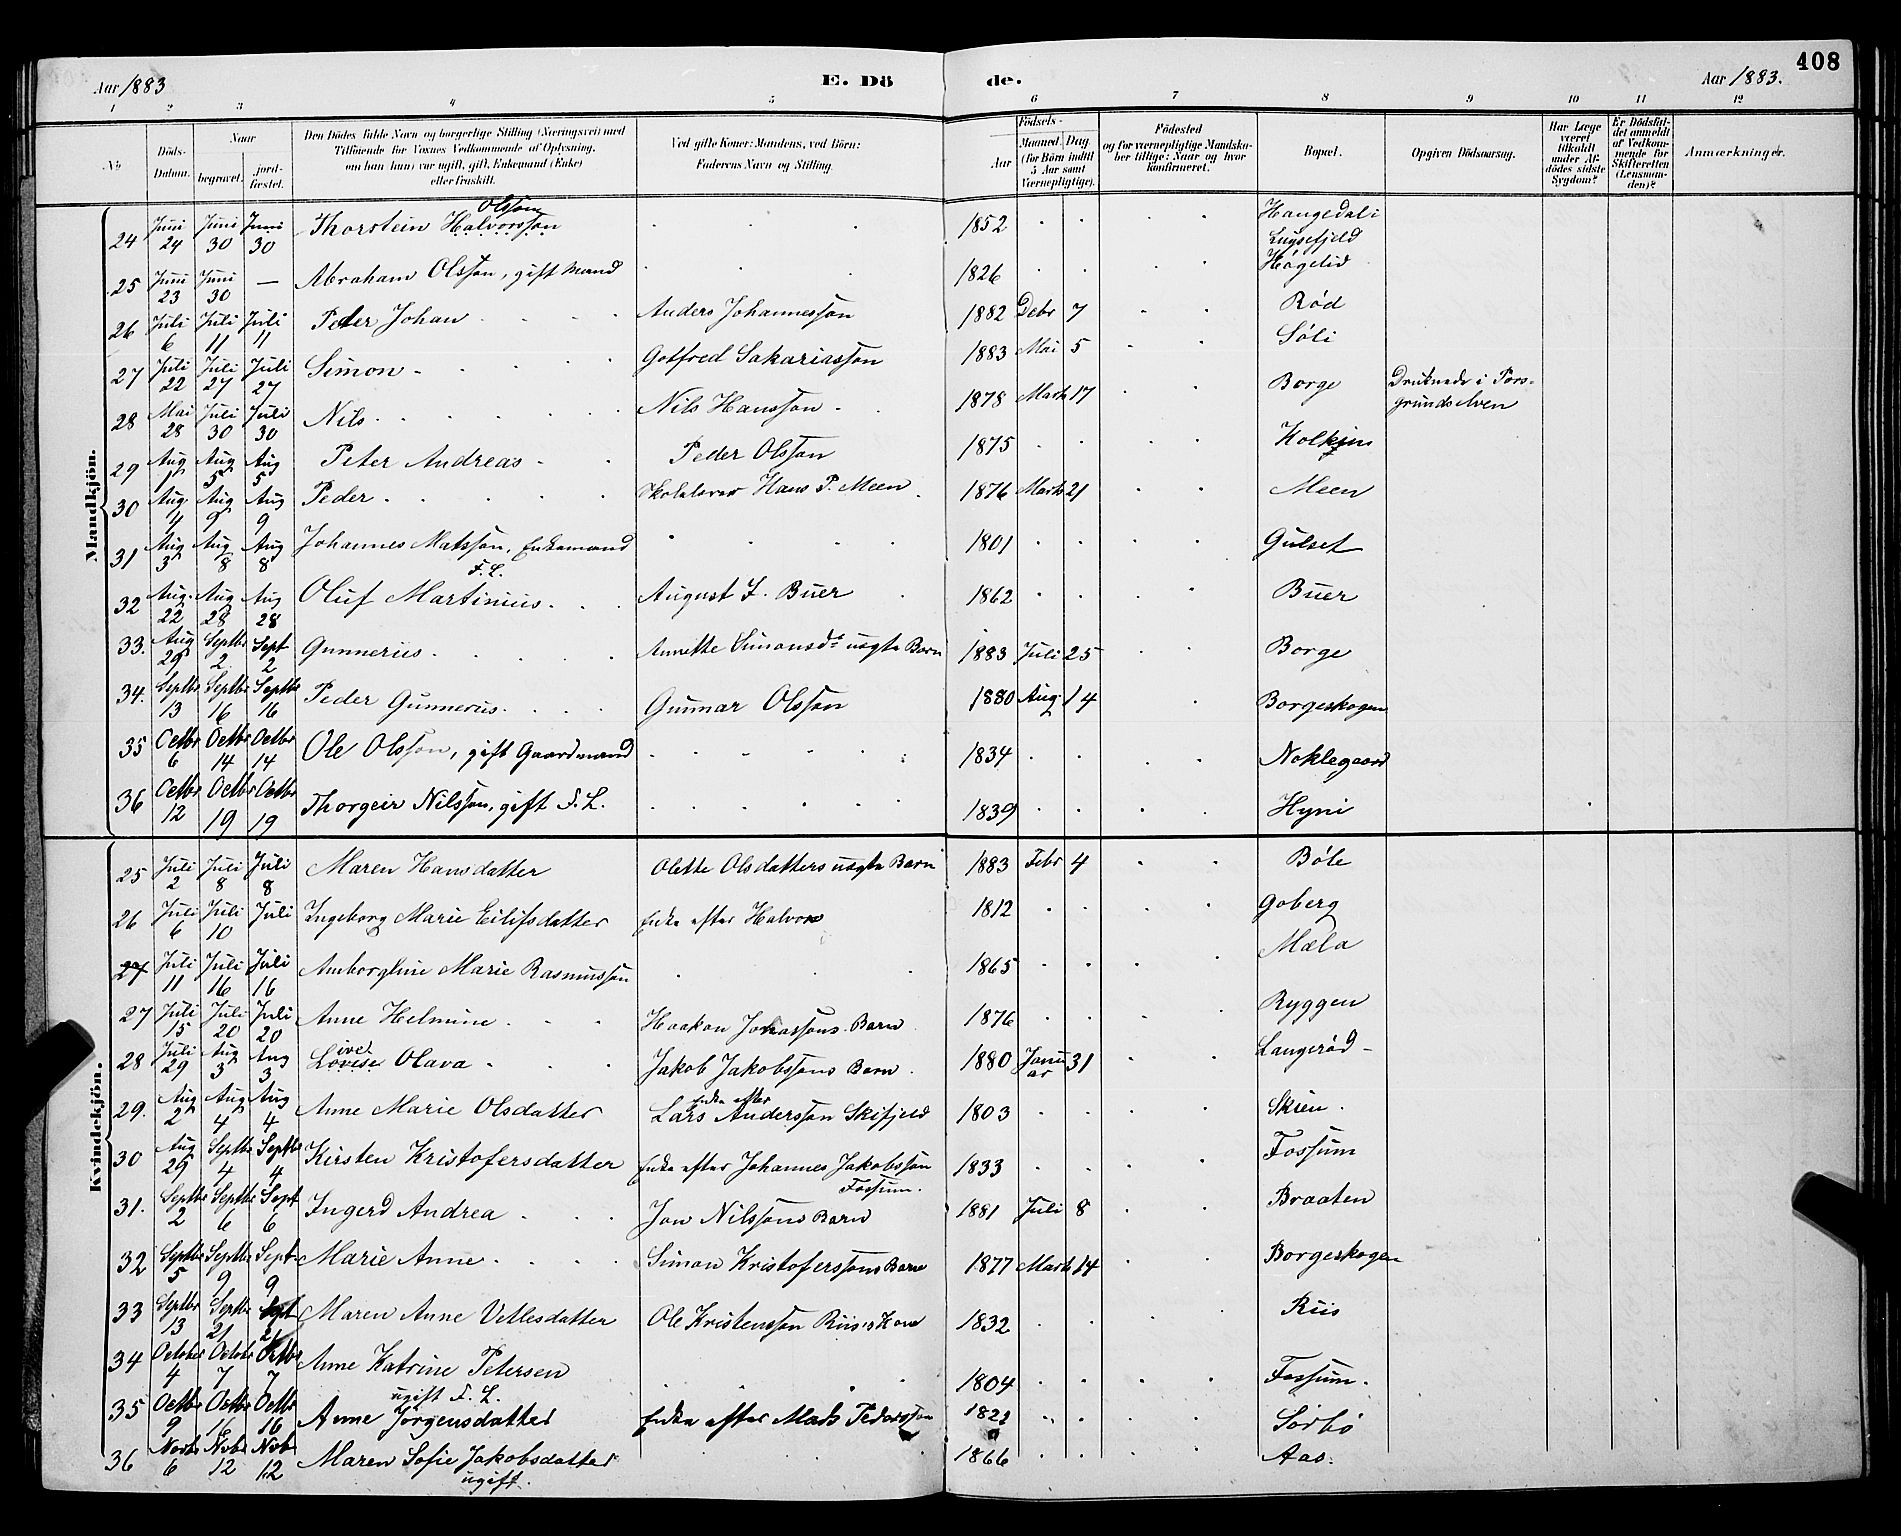 Aar 1883 E. Döde. Aar 1883. 408
1 2 3 4 5 6 7 8 9 10 11 12
№ Döds-Datum. Naar begravet. jord-fæstet. Den Dödes fulde Navn og borgerlige Stilling (Næringsvei) med Tilföiende for Voxnes Vedkommende af Oplysning, om han (hun) var ugift, gift, Enkemand (Enke) eller fraskilt. Ved gifte Koner: Mandens, ved Börn: Faderens Navn og Stilling. Födsels- Aar Maaned Dag (for Börn indtil 5 Aar samt Værnepligtige). Födested og for værnepligtige Mandskaber tillige: Naar og hvor konfirmeret. Bopæl. Opgiven Dödsaarsag. Har Læge været tilkaldt under Afdödes sidste Sygdom? Er Dödsfaldet anmeldt af Vedkommende for Skifteretten (Lensmanden)? Anmærkninger.
Mandkjön.
24 Juni 24 Juni 30 Juni 30 Thorstein Halvorsson Olsson 1852 Haugedal i Luysefjeld
25 Juni 23 Juni 30 — Abraham Olsson, gift Mand 1826 Høgelid
26 Juli 6 Juli 11 Juli 11 Peder Johan Anders Johannesson 1882 Debr 7 Rød
27 Juli 22 Juli 27 Juli 27 Simon Gotfred Sakariasson 1883 Mai 5 Søli
28 Mai 28 Juli 30 Juli 30 Nils Nils Hansson 1878 Marts 17 Borge Druknede i Porsgrundselven
29 Aug 1 Aug 5 Aug 5 Peter Andreas Peder Olsson 1875
30 Aug 4 Aug 9 Aug 9 Peder Skolelærer Hans P. Meen 1876 Marts 21 Meen
31 Aug 3 Aug 8 Aug 8 Johannes Matsson, Enkemand F.L. 1801 Gulset
32 Aug. 22 Aug 28 Aug 28 Oluf Martinius August L. Buer 1862 Buer
33. Aug 29 Septbr 2 Sept 2 Gunnerius Annette Simonsd. uægte Barn 1883 Juli 25 Borge
34. Septbr 13 Septbr 16 Septbr 16 Peder Gunnerus Gunnar Olsson 1880 Aug. 14 Borgeskogen
35 Octbr 6 Octbr 14 Octbr 14 Ole Olsson, gift Gaardmand 1834 Noklegaard
36 Octbr 12 Octbr 19 Octbr 19 Thorgeir Nilsson, gift F.L. 1839 Hyni
Kvindekjön.
25 Juli 2 Juli 8 Juli 8 Maren Hansdatter Olette Olsdatters uægte Barn 1883 Febr 4 Bøle
26 Juli 6 Juli 10 Juli Ingeborg Marie Eilifsdatter Enke efter Halvor 1812 Goberg
27 Juli 11 Juli 16 Juli 16 Amborgline Marie Rasmusson 1865 Mæla
27 Juli 15 Juli 20 Juli 20 Anne Helmine Haakon Jonassons Barn 1876 Ryggen
28 Juli 29 Aug 3 Aug 3 Lovise Olava Jakob Jakobssons Barn 1880 Januar 31 Langerød
29. Aug 2 Aug 4 Aug 4 Anne Marie Olsdatter Enke efter Lars Andersson Skifjeld 1803 Skien.
30 Aug 29 Septbr 4 Septbr 4 Kirsten Kristofersdatter Enke efter Johannes Jakobsson Fossum. 1833 Fossum
31. Septbr 2 Septbr 6 Sept 6 Ingerd Andrea Jon Nilssons Barn 1881 Juli 8 Braaten
32 Septbr 5 Septbr 9 Sept 9 Marie Anne Simon Kristoferssons Barn 1877 Marts 14 Borgeskogen
33 Septbr 13 Septbr 21 Sept 21 Maren Anne Vetlesdatter Ole Kristensson Riis's Kone 1832 Riis
34 October 4 Octobr 7 Octbr 7 Anne Katrine Petersen ugift F.L. 1804 Fossum.
35 Octbr 9 Octbr 16 Octbr 16 Anne Jørgensdatter Enke efter Mads Pedersson 1822 Sørbø
36 Novbr 6 Nvbr 12 Nvbr 12 Maren Sofie Jakobsdatter ugift. 1866 Aas.